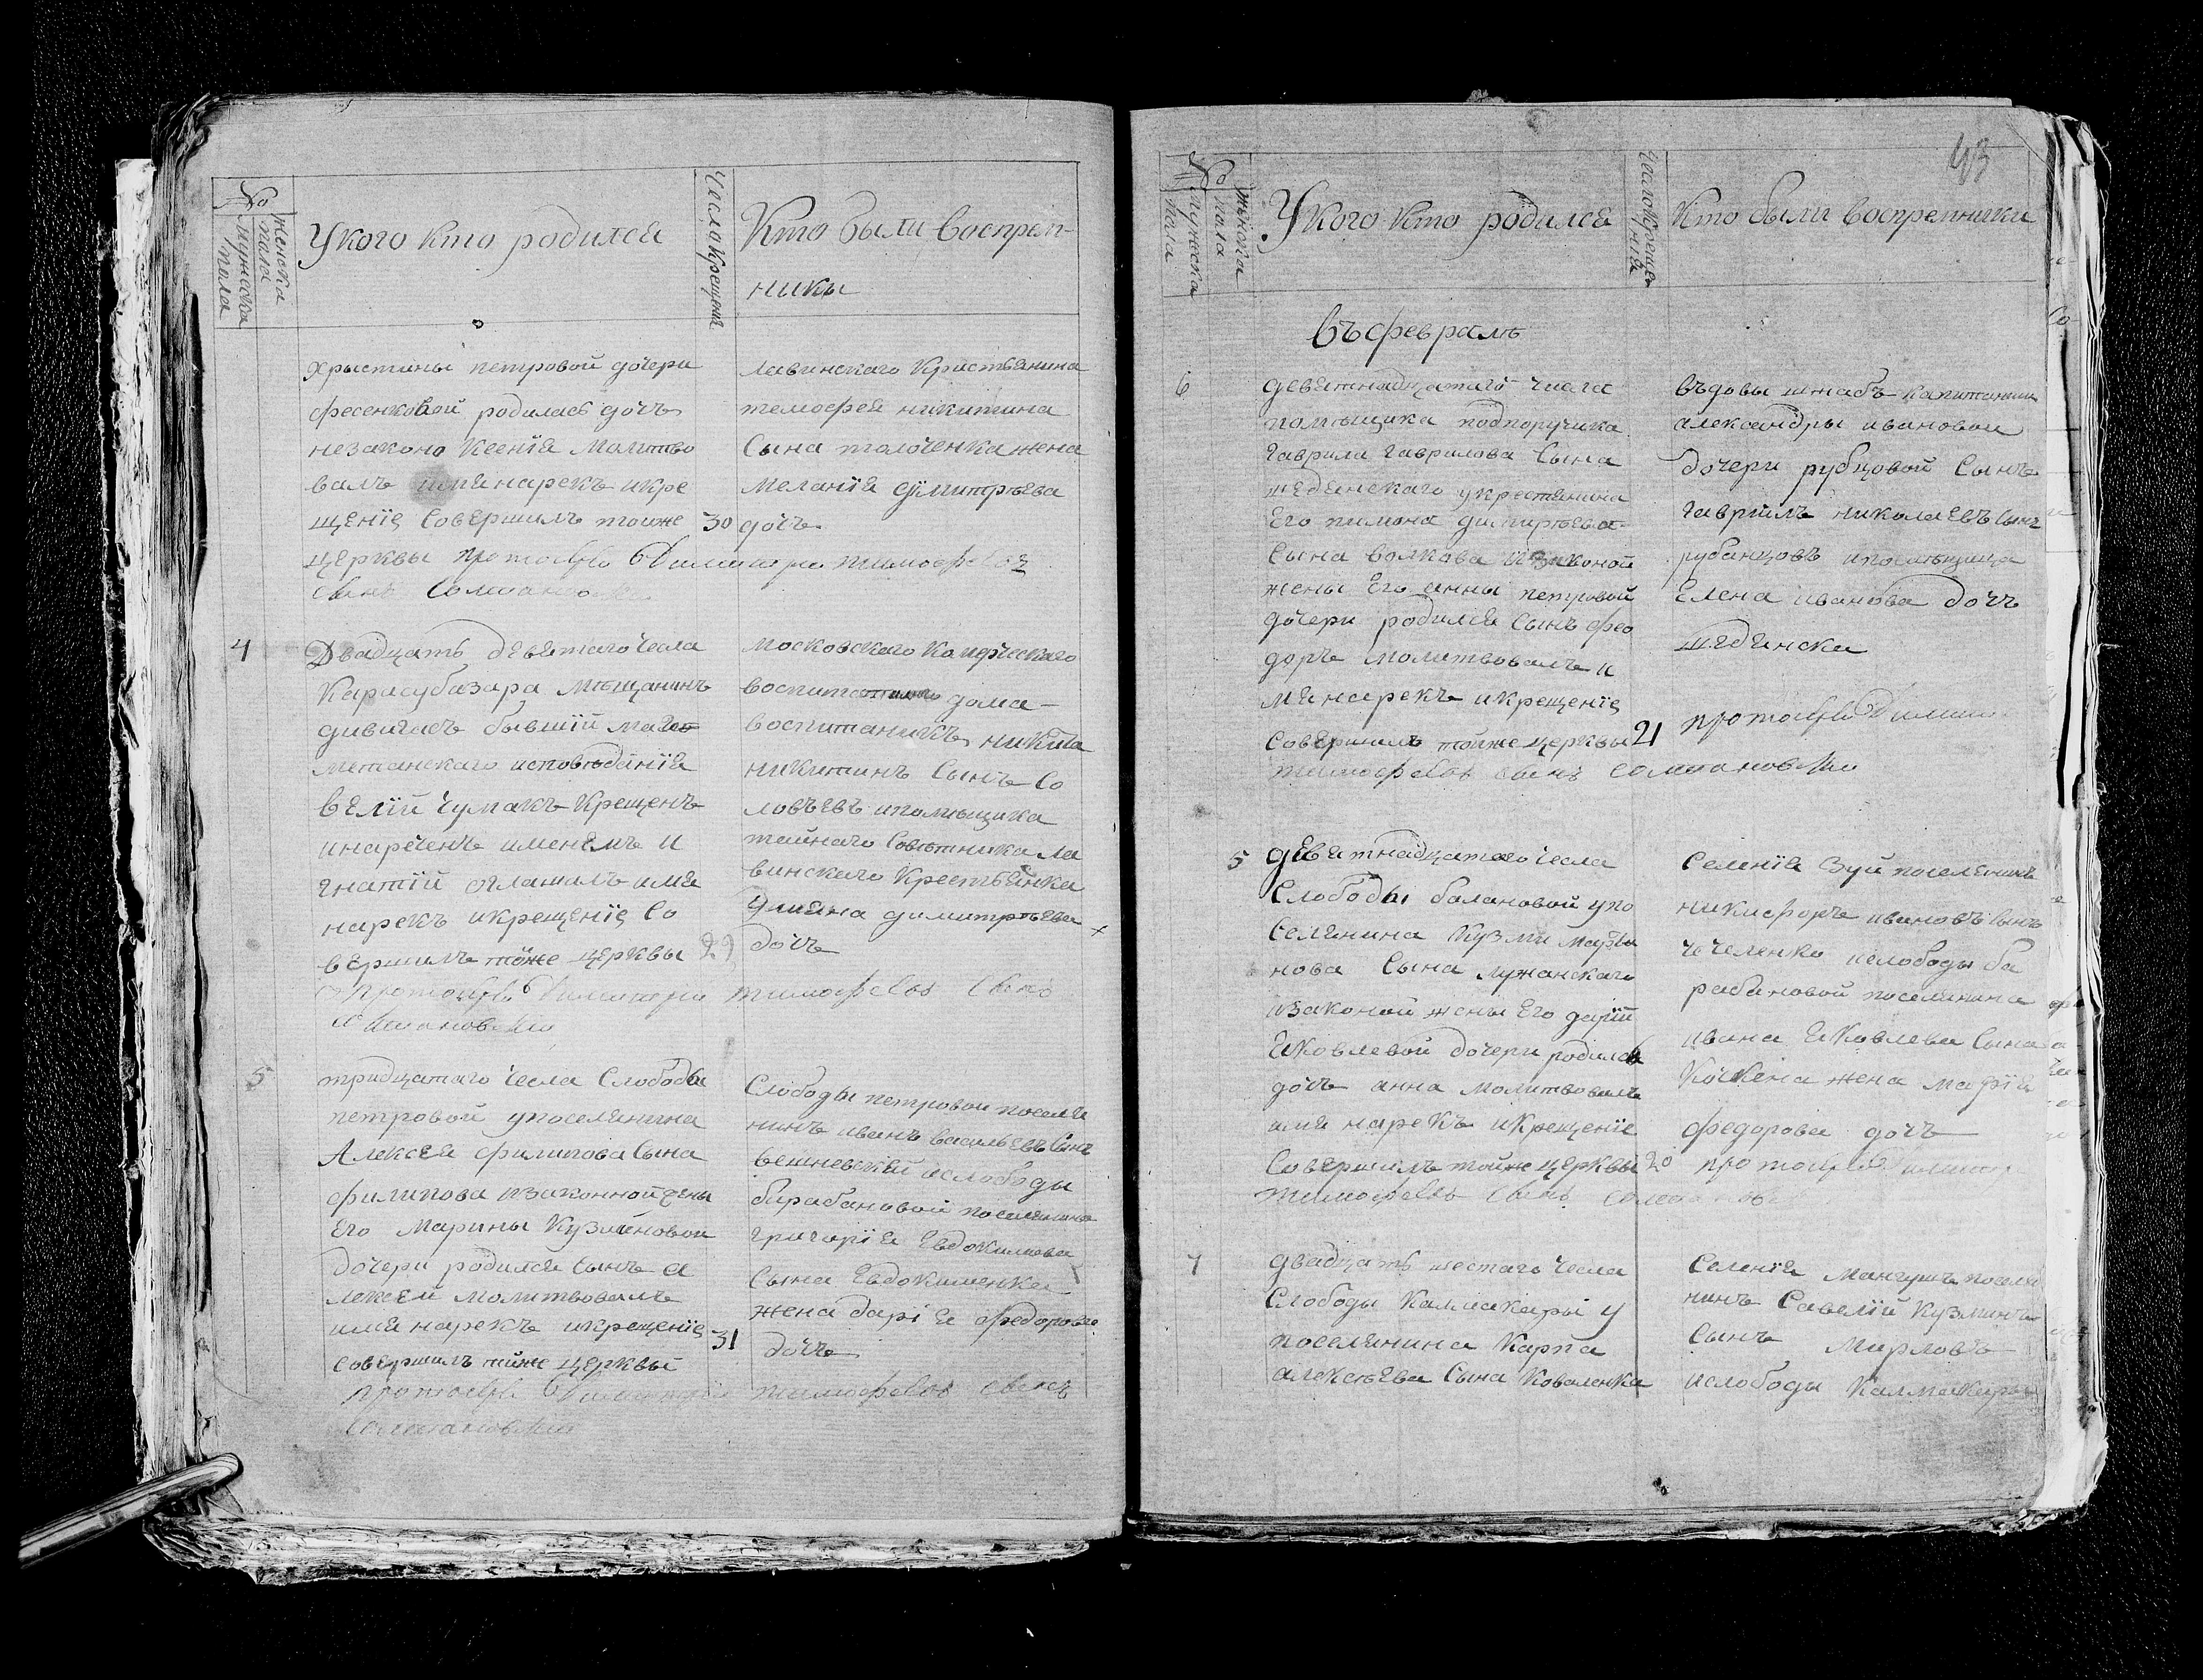 №
мужеска пола
женска пола
У кого кто родился
Число крещения
Кто были восприем-
ники
Христины петровой дочери
фесенковой родилась дочь
незаконо Ксенїя Молитво
валъ имя нарекъ и кре
щенїе Совершилъ тойже 30
церквы протоиерей Димитри тимофеев
лавинскаго Кристьянина
темофея никитина
Сына толоченка жена
Меланїя думитрѣева
дочь
4
Двадцать девятаго Чесла
Карасубазара мѣщанинъ
дивигаеъ бывшїй маго
метанскаго исповѣданїя
велїй Чумакъ Крещенъ
и нареченъ именемъ и
гнатїй оглашалъ имя
нарекъ и крещенїе Со
вершилъ тойже церквы 29
протоиерей Димитри тимофеев
московскаго
воспитателнаго дома
воспитаникъ никита
никитинъ Сынъ Со
ловъевъ и помѣщика
тайнаго Совѣтника ла
винскаго Крестьянка
Улияна димитрѣева
дочь
5
тридцатаго Чесла Слободы
петровой упоселянина
Алексея филипова Сына
филипова и законной жены
Его Марины Кузминовой
дочери родился Сынъ а
лексей молитвовалъ
имя нарекъ и крещенїе 31
совершилъ тойже церквы
протоиерей Димитрїй тимофеев
Слободы петровои поселя
нинъ иванъ васильевъ Сынъ
вешневскїй и слободы
барабановой поселянина
григорїя Евдокимова
Сына Евдокименка
жена дарїя федорова
дочь
43
№
мужеска пола
женска пола
У кого кто родился
Число крещения
Кто были восприемники
Въ февралѣ
6
девятнадцатаго Числа
помѣщика подпоручика
Гаврила Гаврилова Сына
шединскаго у крестянина
Его пимона димитрѣева
Сына волкова и законой
жены Его анны петровой
дочери родился Сынъ фео
доръ молитвовалъ и
мя нарекъ и крещенїе
Совершилъ тойже церквы 21
въдовы штабъ капитанши
александры ивановои
дочери рубцовой Сынъ
гаврїилъ николаевъ Сынъ
рубанцовъ и помѣщица
Елена иванова дочь
шединска
протоиерей Димит
5
девятнадцатаго Чесла
Слободы балановой упо
Селянина Кузми марты
нова Сына лужанскаго
и законой жены Его дарїй
Яковлевой дочери родилас
дочь анна молитвовалъ
имя нарекъ и крещенїе
Совершилъ тойже церквы 20
Селенїя Зуй поселянинъ
никифоръ ивановъ Сынъ
чечеленко и слободы ба
рабановой поселянина
ивана Яковлева Сына
Кочкена жена марїя
федорова дочь
протоиерей Димит
7
двадцать шестаго Чесла
Слободы Калмакары у
поселянина Карпа
алексѣева Сына Коваленка
Селенїя мангушъ поселя
нинъ Савелїй Кузминъ
Сынъ Мирловъ
и слободы Калмакары